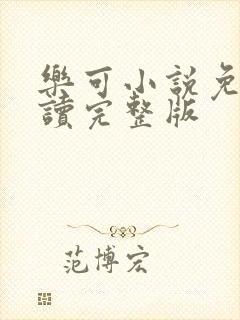 樂可小説免
讀完整版
范博宏